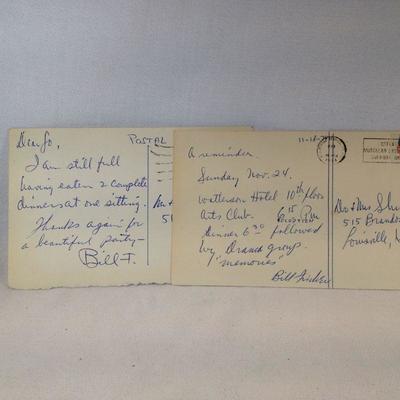 Dear Jo,
I am still full
having eaten 2 complete
dinners at one sitting.
Thanks again for
a beautiful party-
Bill F.
POSTAL
Mr
51
11-18-
A reminder
Sunday Nov. 24.
Watterson Hotel 10th floor
Arts Club. 6:15 PM
dinner 6:30 followed
by Drama group.
"memories"
Bill
Mrs
515 Brando
Louisville,